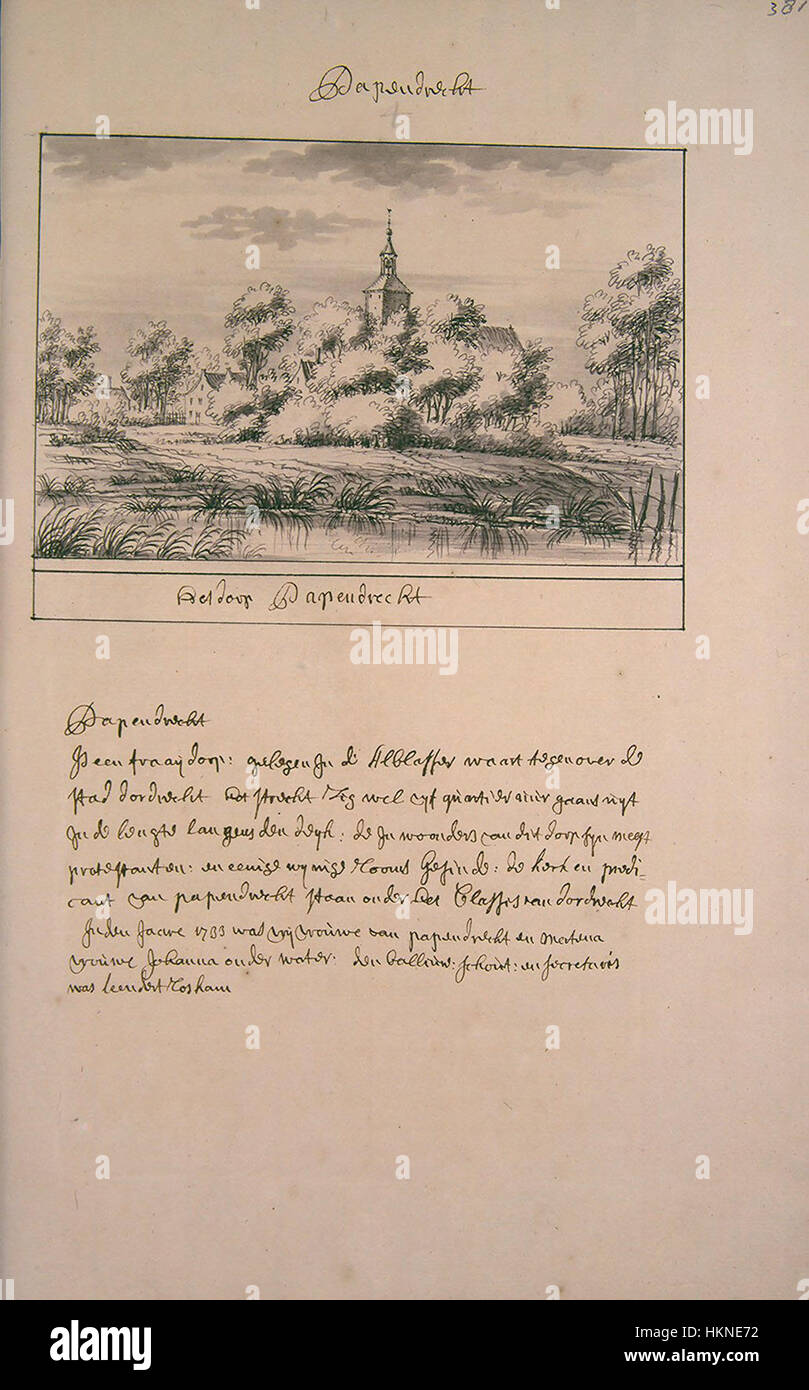 381
Papendrecht
Het dorp Papendrecht
Papendrecht
Is een fraaij dorp: gelegen In de Alblasser waart tegenover de
stad dordrecht Het strekt Zig wel vijf quartier uur gaans uijt
In de lengte langens den deijk: de In woonders van dit dorp sijn meest
protestanten: en eenige wijnige Rooms Gesinde: de kerk en predi-
cant van papendrecht staan onder Het Classis van dordrecht
In den Jaare 1733 was vrij vrouwe van papendrecht en matena
vrouwe Johanna onder water: den balliuw: schout: en secretaris
was leendert Roskam
alamy
alamy
Image ID: HKNE72
www.alamy.com